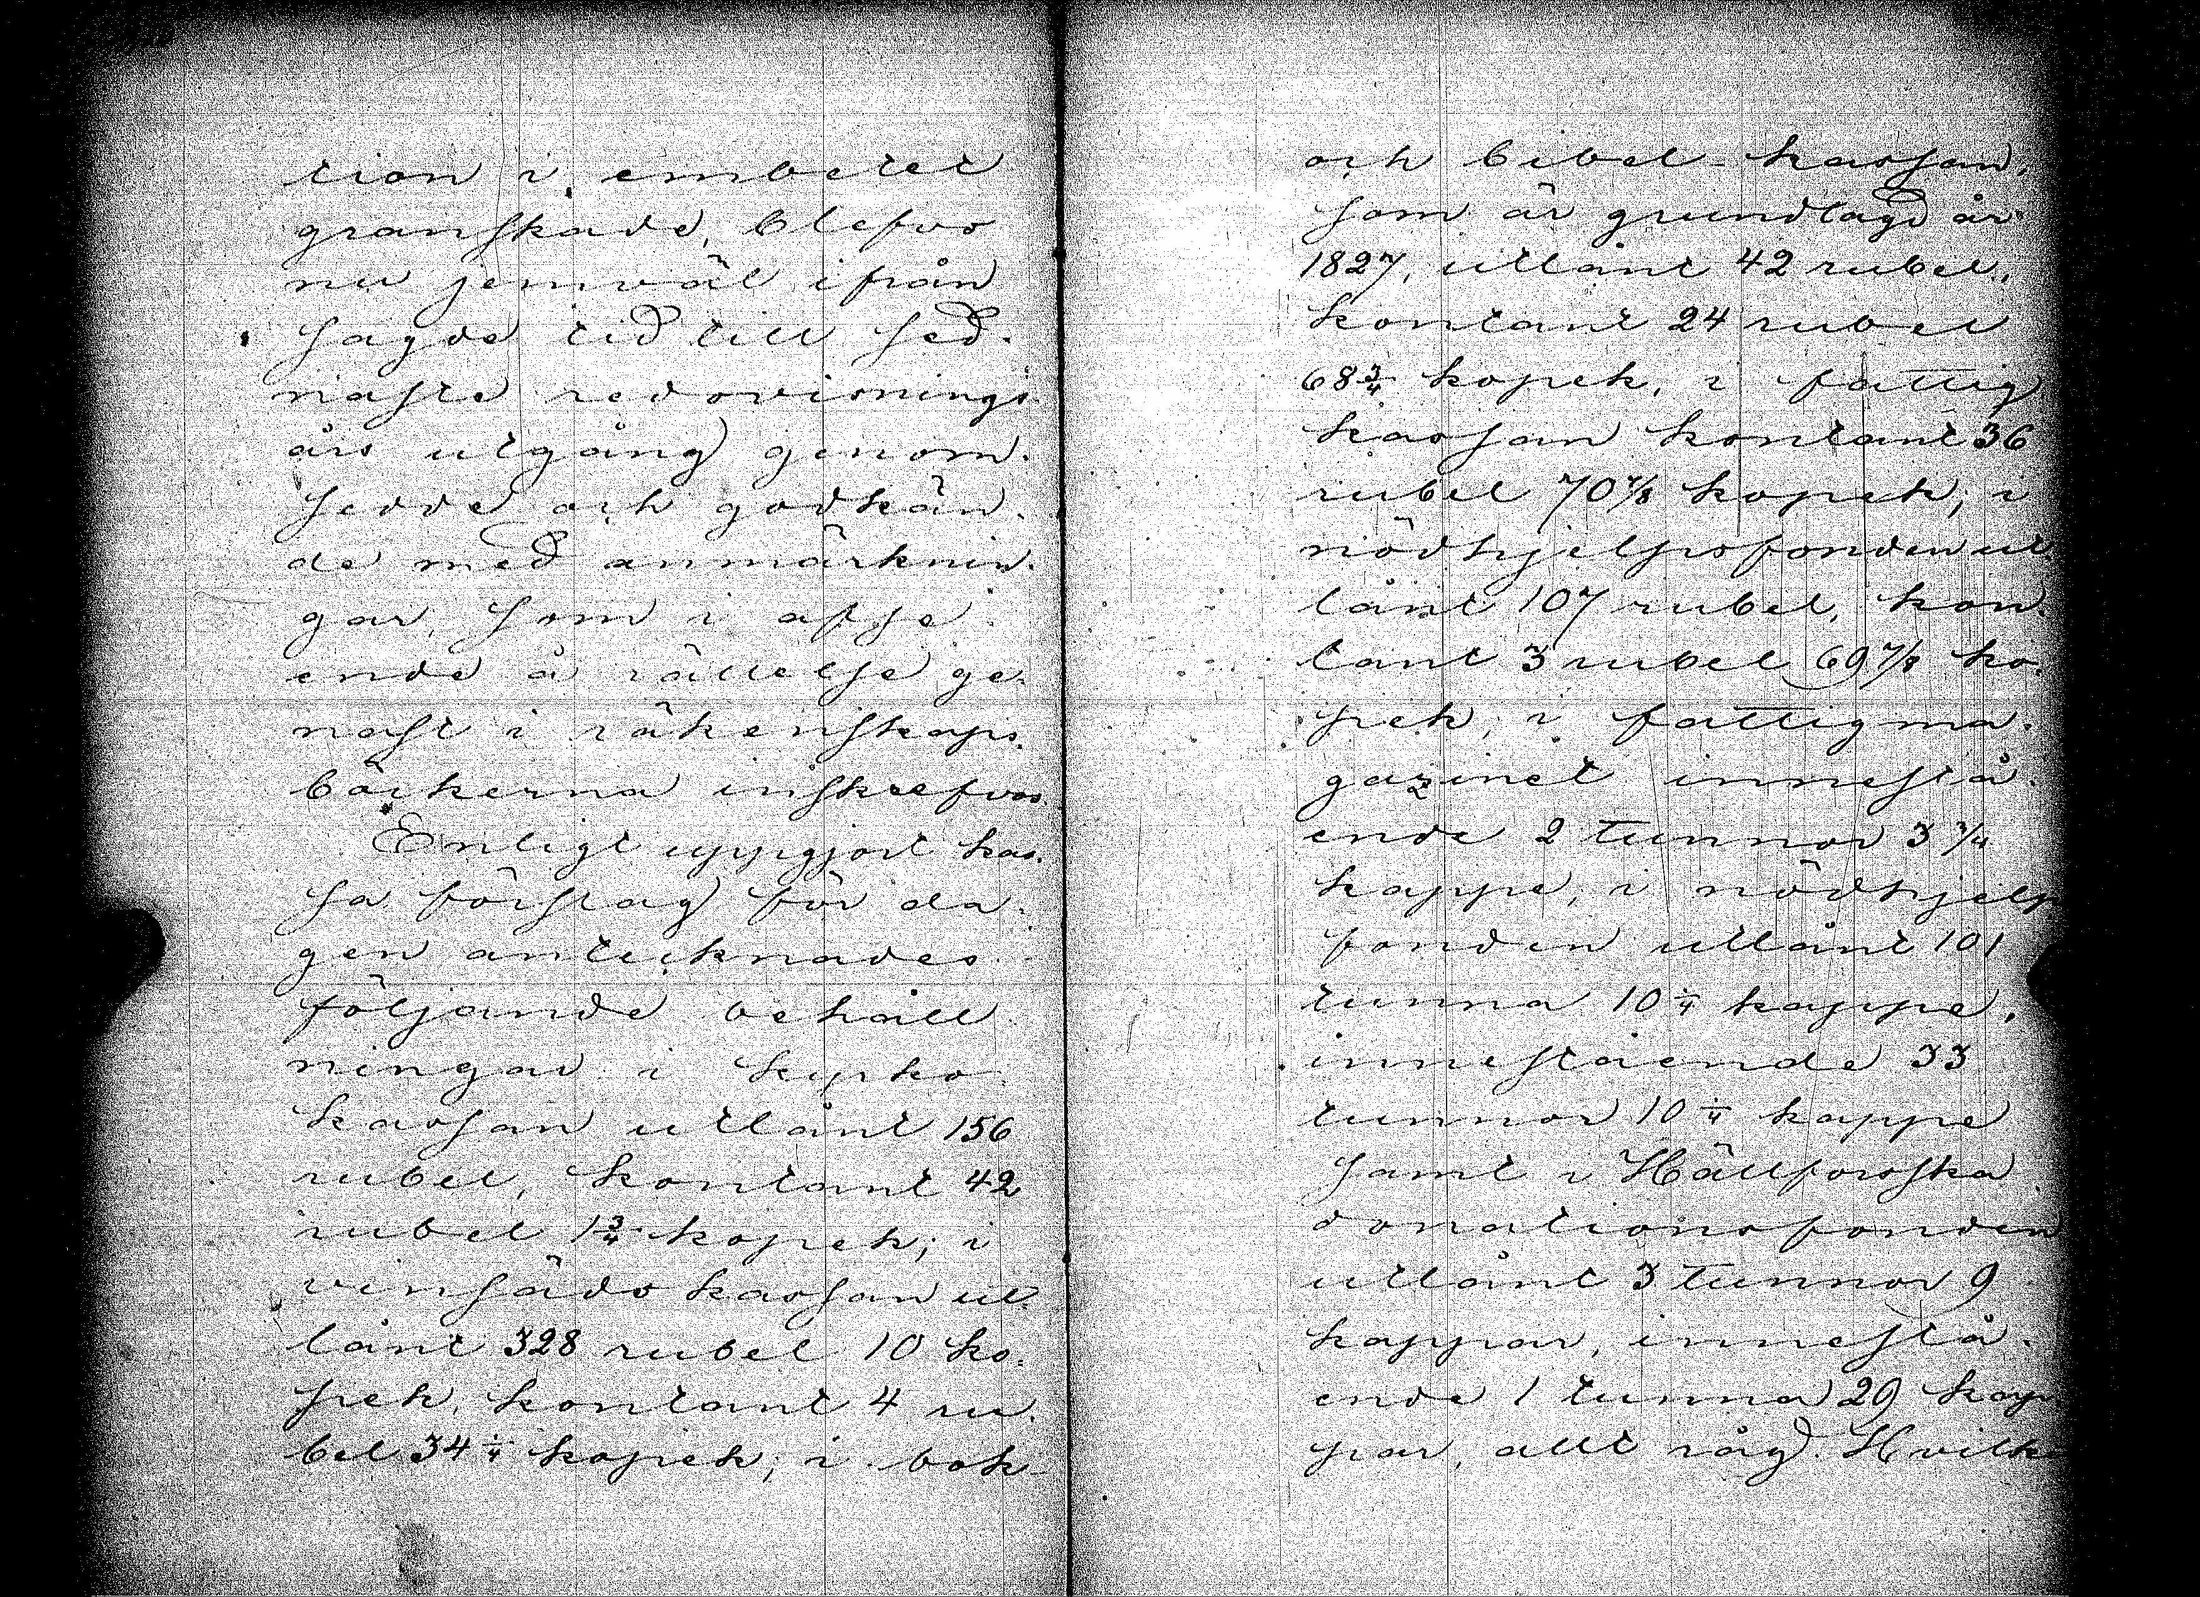 tion i embetet
granskade, blefvo
nu jemväl ifrån
sagde tid till sed-
naste redovisnings
års utgång genom-
sedde och godkän-
de med anmärknin-
gar, som i afse
ende å rättelse ge-
nast i räkenskaps-
böckerna inskrefvos.
Enligt uppgjort kas-
sa förslag för da-
gen antecknades
följande behåll
ningar i kyrko
kassan utlånt 156
rubel, kontant 42
rubel 1 3/4 kopek; i
vinsädskassan ut-
lånt 328 rubel 10 ko-
pek, kontant 4 ru-
bel 34 1/4 kopek; i bok-
och bibel-kassan,
som är grundlagd år
1827, utlånt 42 rubel,
kontant 24 rubel
68 3/4 kopek, i fattig
kassan kontant 36
rubel 70 7/8 kopek; i
nödhjelpsfonden ut-
lånt 107 rubel, kon-
tant 3 rubel 69 7/8 ko-
pek; i fattigma-
gazinet innestå-
ende 2 tunnor 3 3/4
kappe, i nödhjelp
fonden utlånt 101
tunna 10 1/4 kappe,
innestående 33
tunnor 10 1/4 kappe
samt i Hällforsska
donationsfonden
utlånt 3 tunnor 9
kappar, innestå-
ende 1 tunna 29 kap
par, allt råg. Hvilk